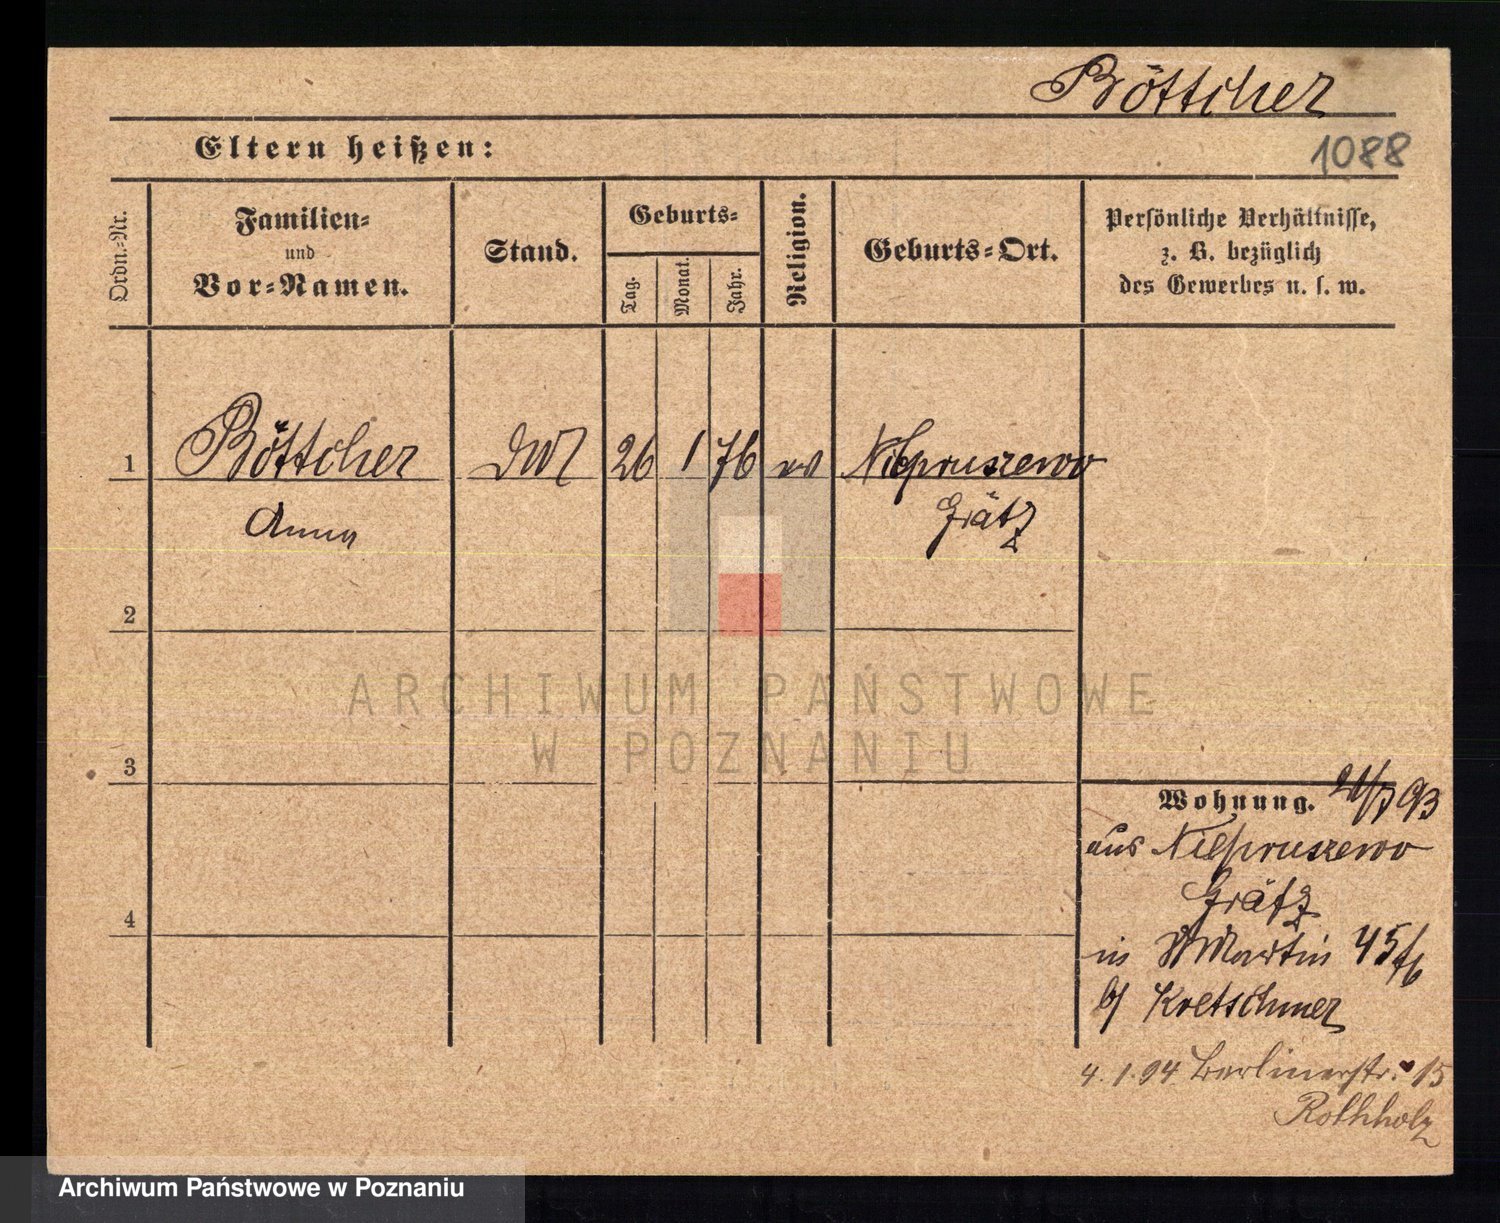 Böttcher
Eltern heißen:
1088
Ordn.-Nr.
Familien-
und
Vor-Namen.
Stand.
Geburts-
Tag.
Monat.
Jahr.
Religion.
Geburts-Ort.
Persönliche Verhältnisse,
z. B. bezüglich
des Gewerbes u. s. w.
1
Böttcher
26
1
76
ev
Niepruszewo
Anna
Grätz
2
ARCHIWUM PAŃSTWOWE
W POZNANIU
3
Wohnung.
93
aus Niepruszewo
Grätz
4
in St Martin 45
b/ Kretschmer
4. 1. 94 Berlinerstr. 15
Rothholz
Archiwum Państwowe w Poznaniu